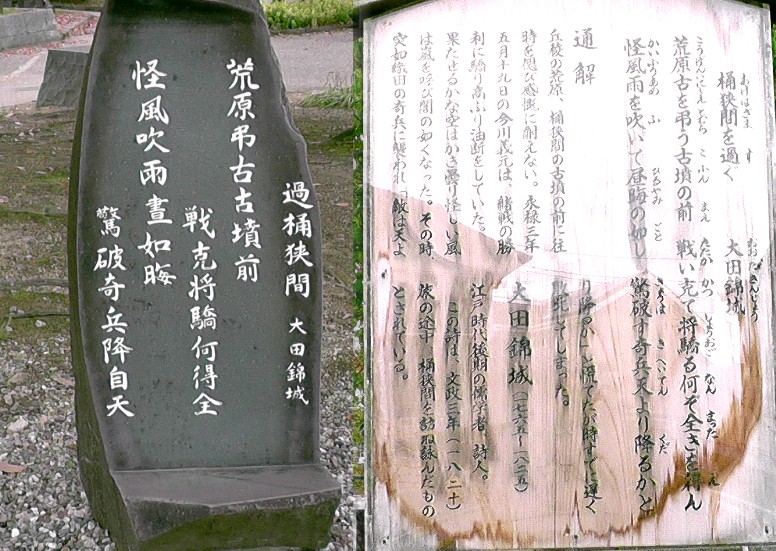 過桶狭間 大田錦城
荒原弔古古墳前
戦克将驕何得全
怪風吹雨晝如晦
驚破奇兵降自天
桶狭間を過ぐ 大田錦城
荒原古を弔う古墳の前 戦い克て将驕る何ぞ全きを得ん
怪風雨を吹いて昼晦の如し 驚破す奇兵天より降るかと
通解
丘陵の荒原、桶狭間の古墳の前に往
時を思び感慨に耐えない。永禄三年
五月十九日の今川義元は、緒戦の勝
利に驕り高ぶり油断をしていた。
果たせるかな空はかき曇り怪しい風
は嵐を呼び闇の如くなった。その時
突如織田の奇兵に襲われ「敵は天よ
り降るか」と慌てたが時すでに遅く
敗死してしまった。
大田錦城(一七六五~一八二五)
江戸時代後期の儒学者、詩人。
この詩は、文政三年(一八二十)
旅の途中 桶狭間を訪ね詠んだもの
とされている。